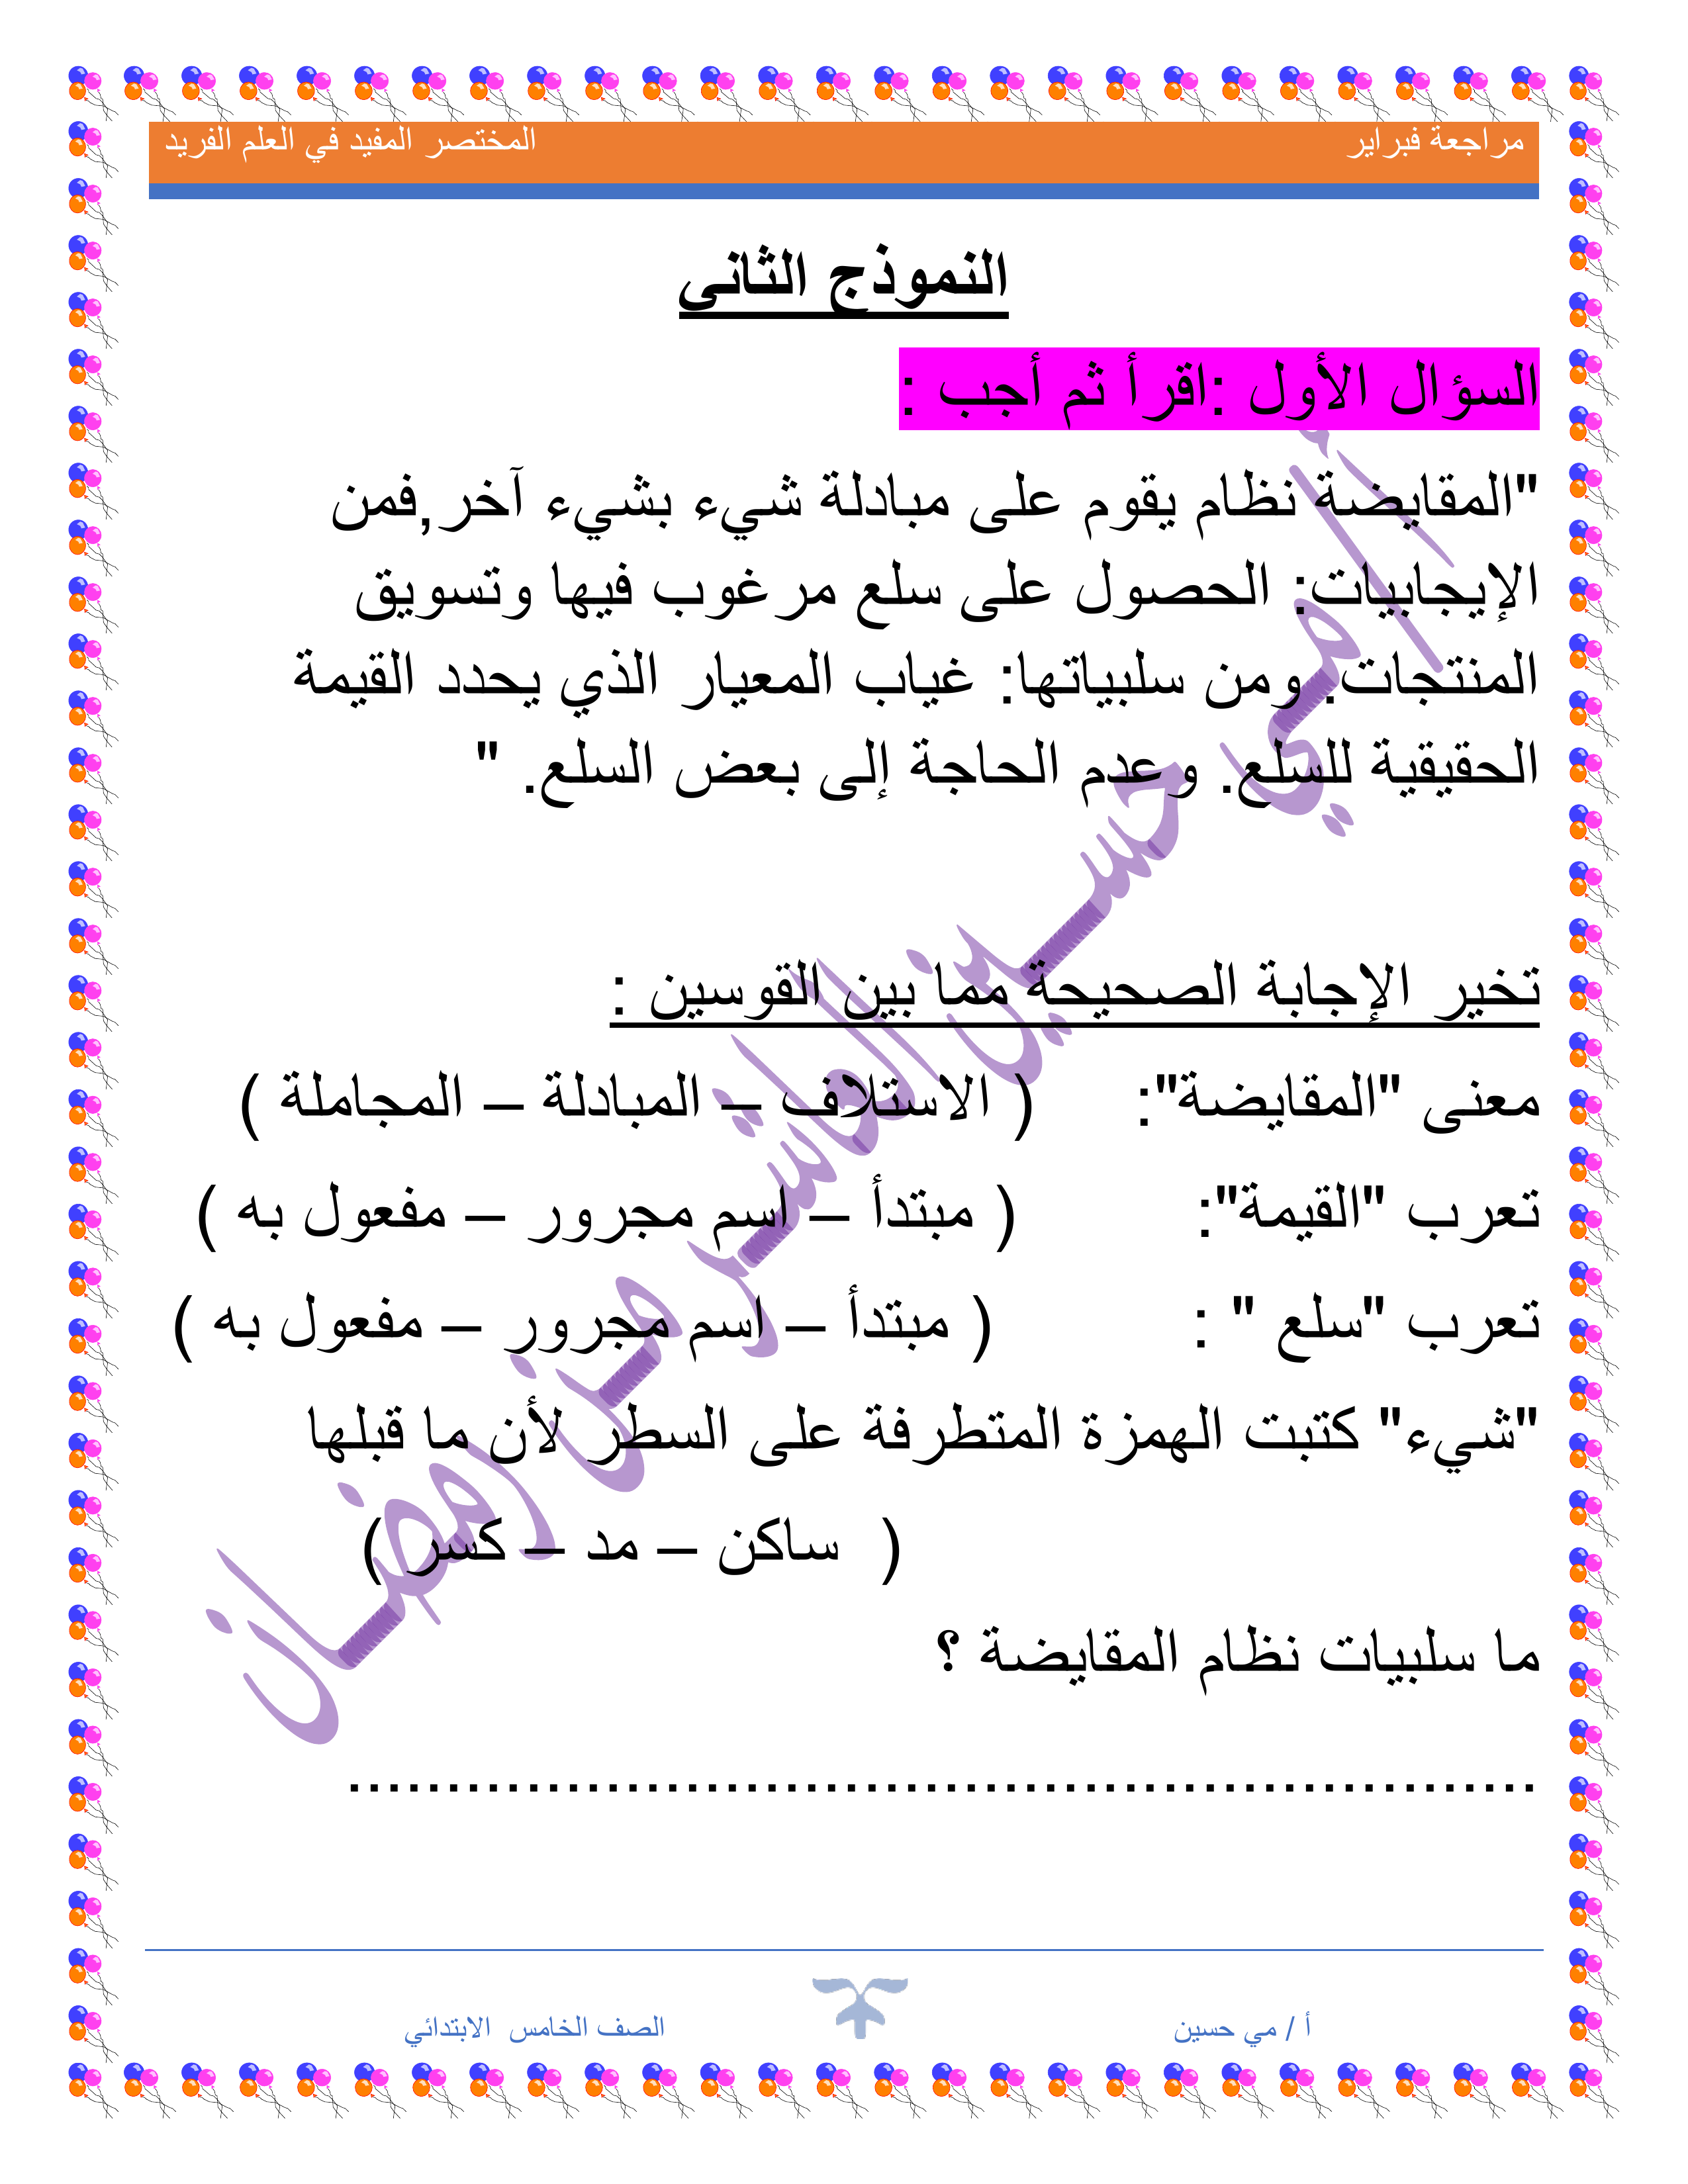 مراجعة فبراير المختصر المفيد في العلم الفريد
النموذج الثاني
السؤال الأول :اقرأ ثم أجب :
"المقايضة نظام يقوم على مبادلة شيء بشيء آخر,فمن
الإيجابيات: الحصول على سلع مرغوب فيها وتسويق
المنتجات. ومن سلبياتها: غياب المعيار الذي يحدد القيمة
الحقيقية للسلع. وعدم الحاجة إلى بعض السلع. "
تخير الإجابة الصحيحة مما بين القوسين :
معنى "المقايضة": ( الاستلاف – المبادلة – المجاملة )
تعرب "القيمة": ( مبتدأ – اسم مجرور – مفعول به )
تعرب "سلع " : ( مبتدأ – اسم مجرور – مفعول به )
"شيء" كتبت الهمزة المتطرفة على السطر لأن ما قبلها
( ساكن – مد – كسر )
ما سلبيات نظام المقايضة ؟
............................................................
أ/مي حسين العاشر من رمضان
أ / مي حسين الصف الخامس الابتدائي